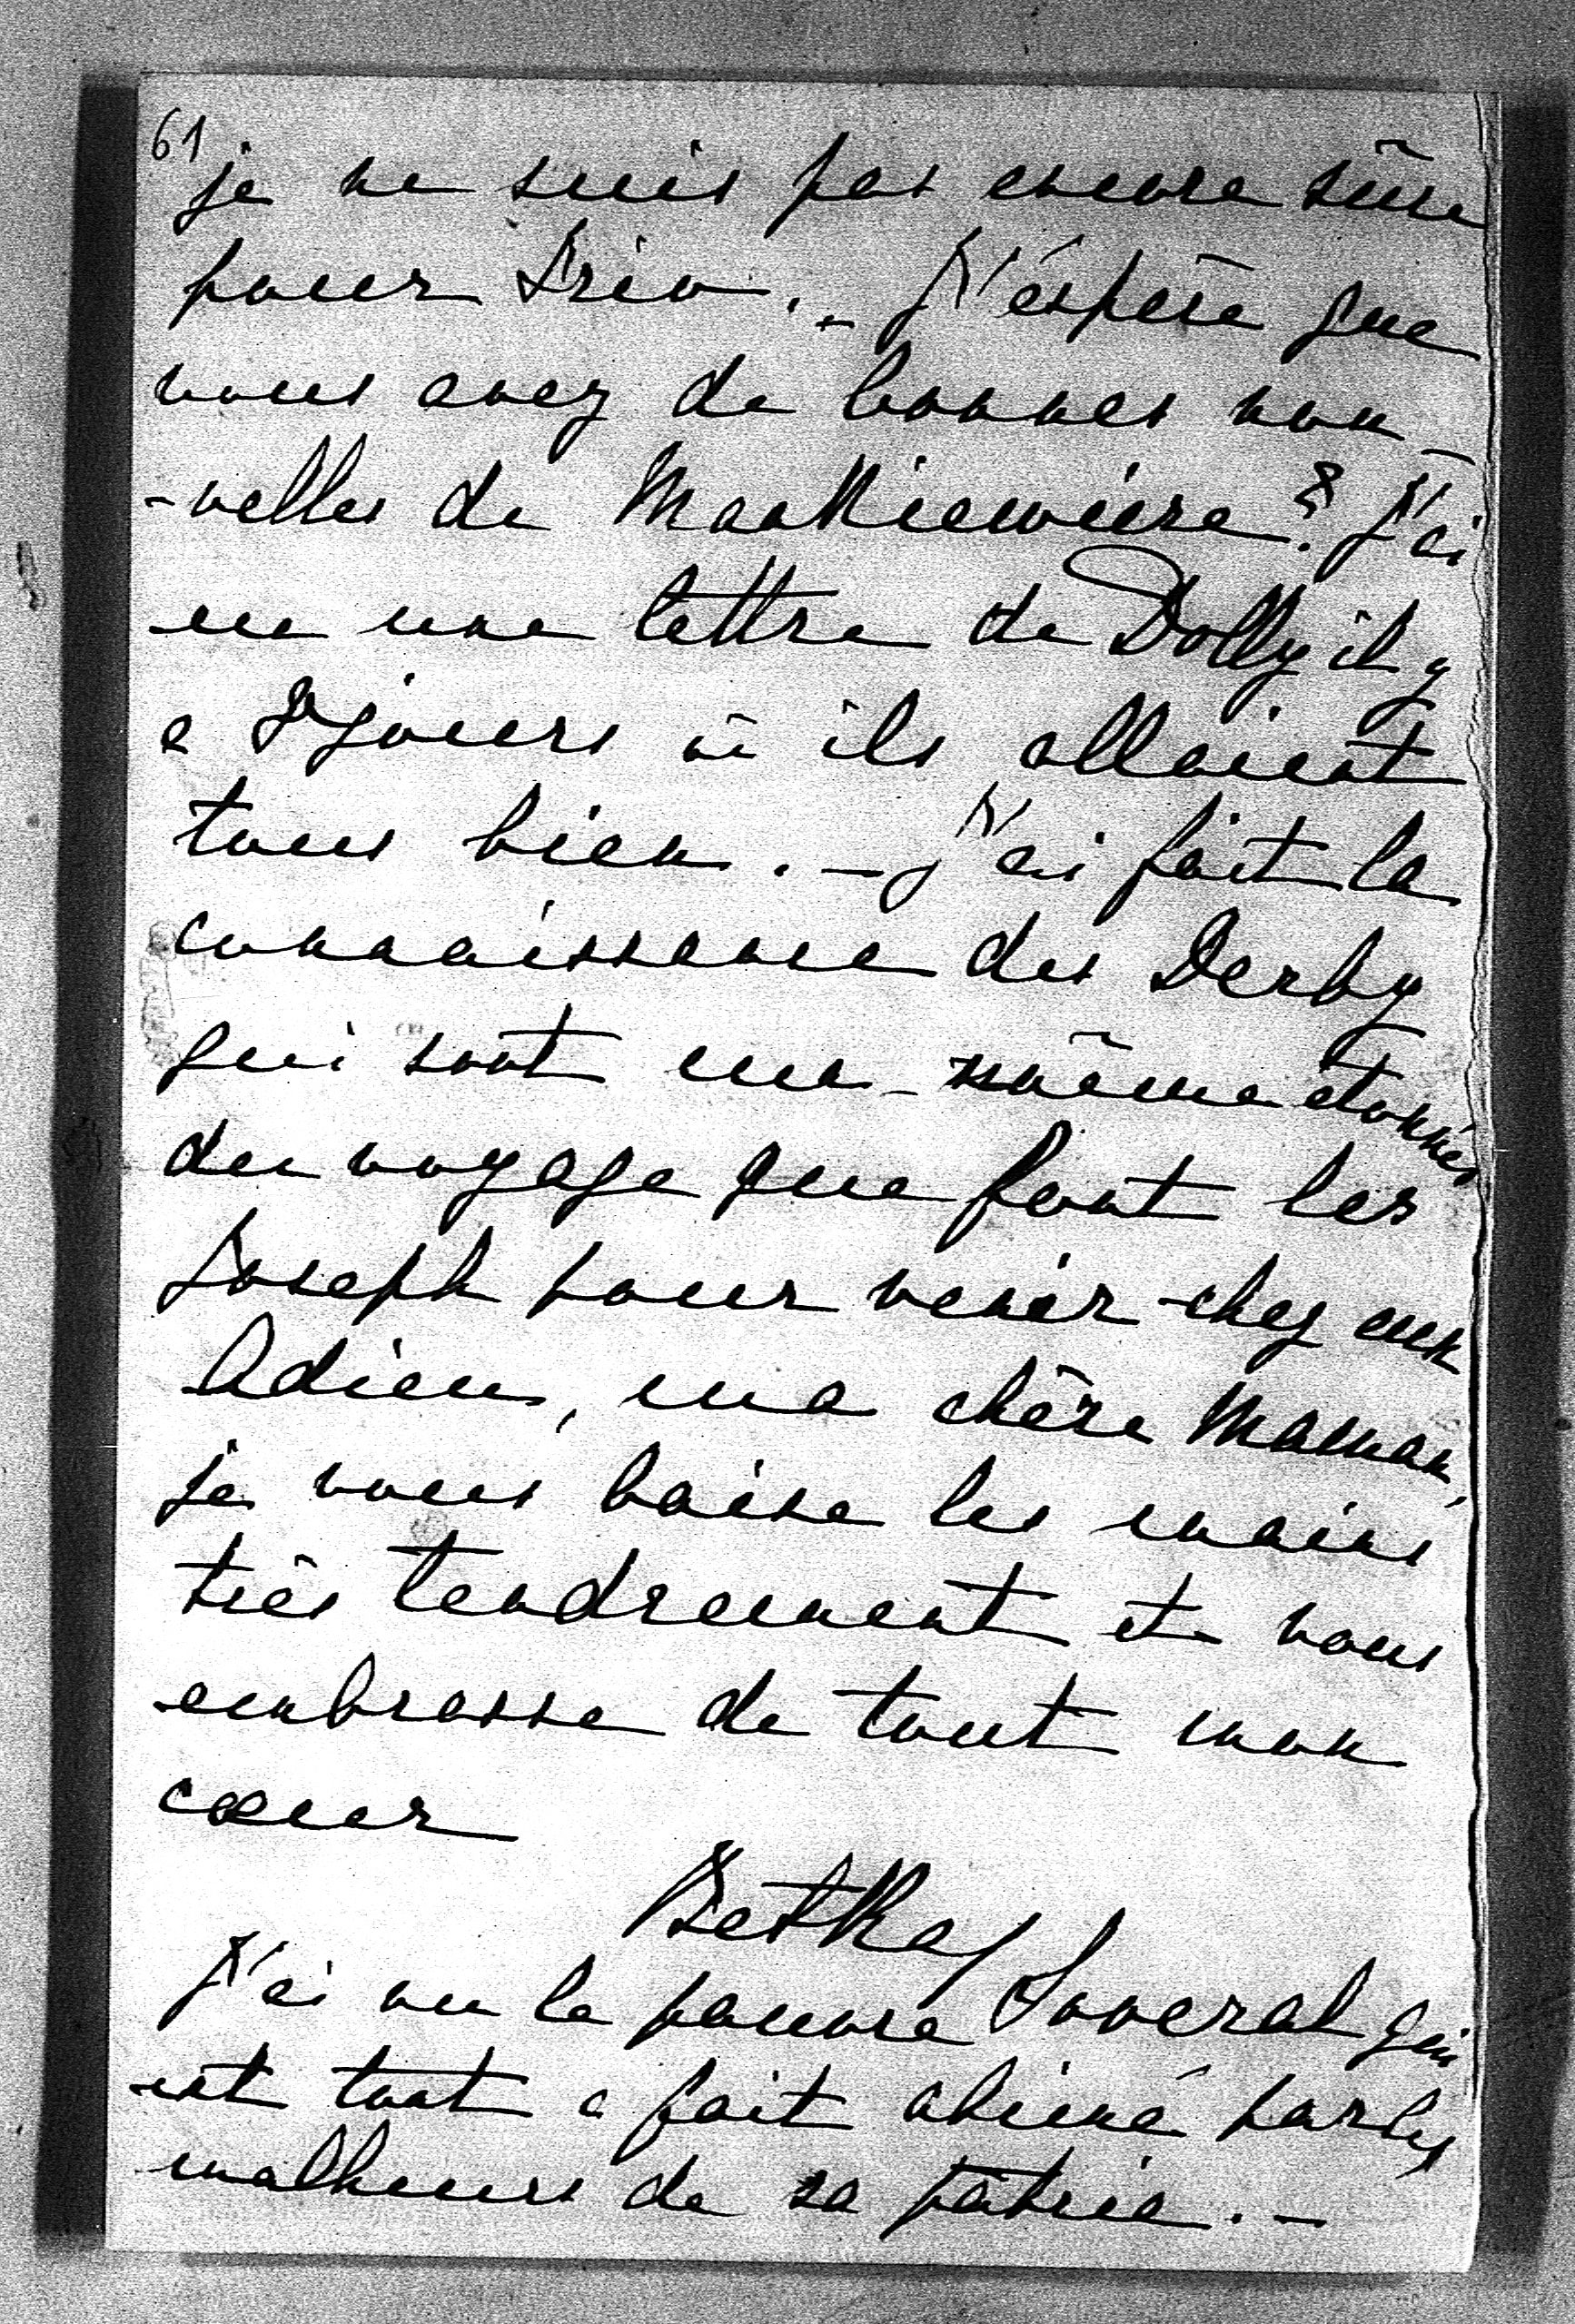 61
je ne suis pas encore sûre
pour . – J'éspère que
vous avez de bonnes nou
-velles de ? J'ai
eu une lettre de Dolly il y
a jours où ils allaient
tous bien . – J'ai fait la
connaissance des Derby
qui sont eux-même étonnés
du voyage que font les
Joseph pour venir chez eux
Adieu, ma chère Maman,
je vous baise les mains
très tendrement et vous
embrasse de tout mon
cœur
Betka
J'ai vu le pauvre Soveral qui
est tout a fait abimé par les
malheurs de sa patrie. –